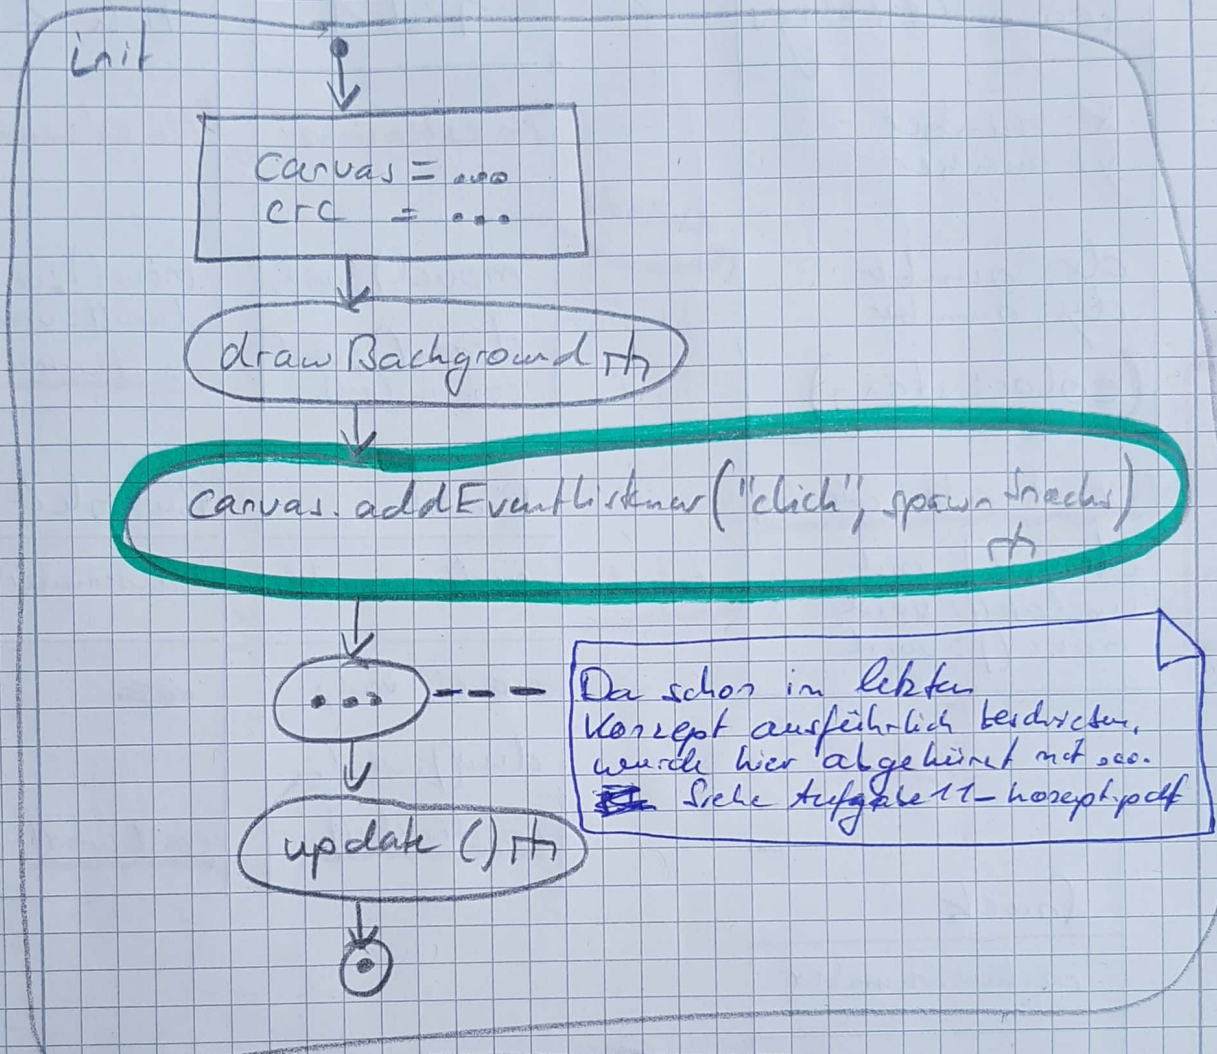 init
canvas = ...
crc = ...
drawBackground
canvas.addEventListener("click", spawnSnacks)
...
Da schon im letzten
Konzept ausführlich beschrieben,
wurde hier abgekürzt mit ...
Siehe Aufgabe11-konzept.pdf
update ()